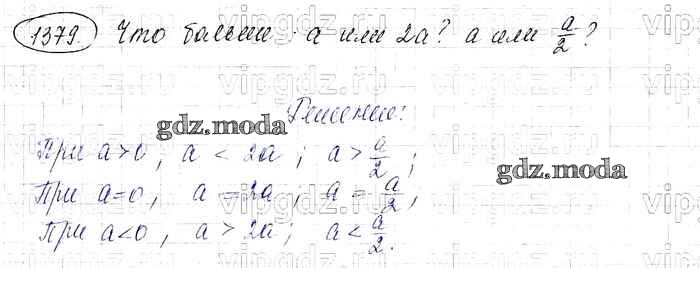 1379. Что больше: a или 2a? a или a/2?
Решение:
gdz.moda
При a>0, a < 2a; a > a/2;
gdz.moda
При a=0, a = 2a, a = a/2,
При a<0, a > 2a; a < a/2.
vipgdz.ru